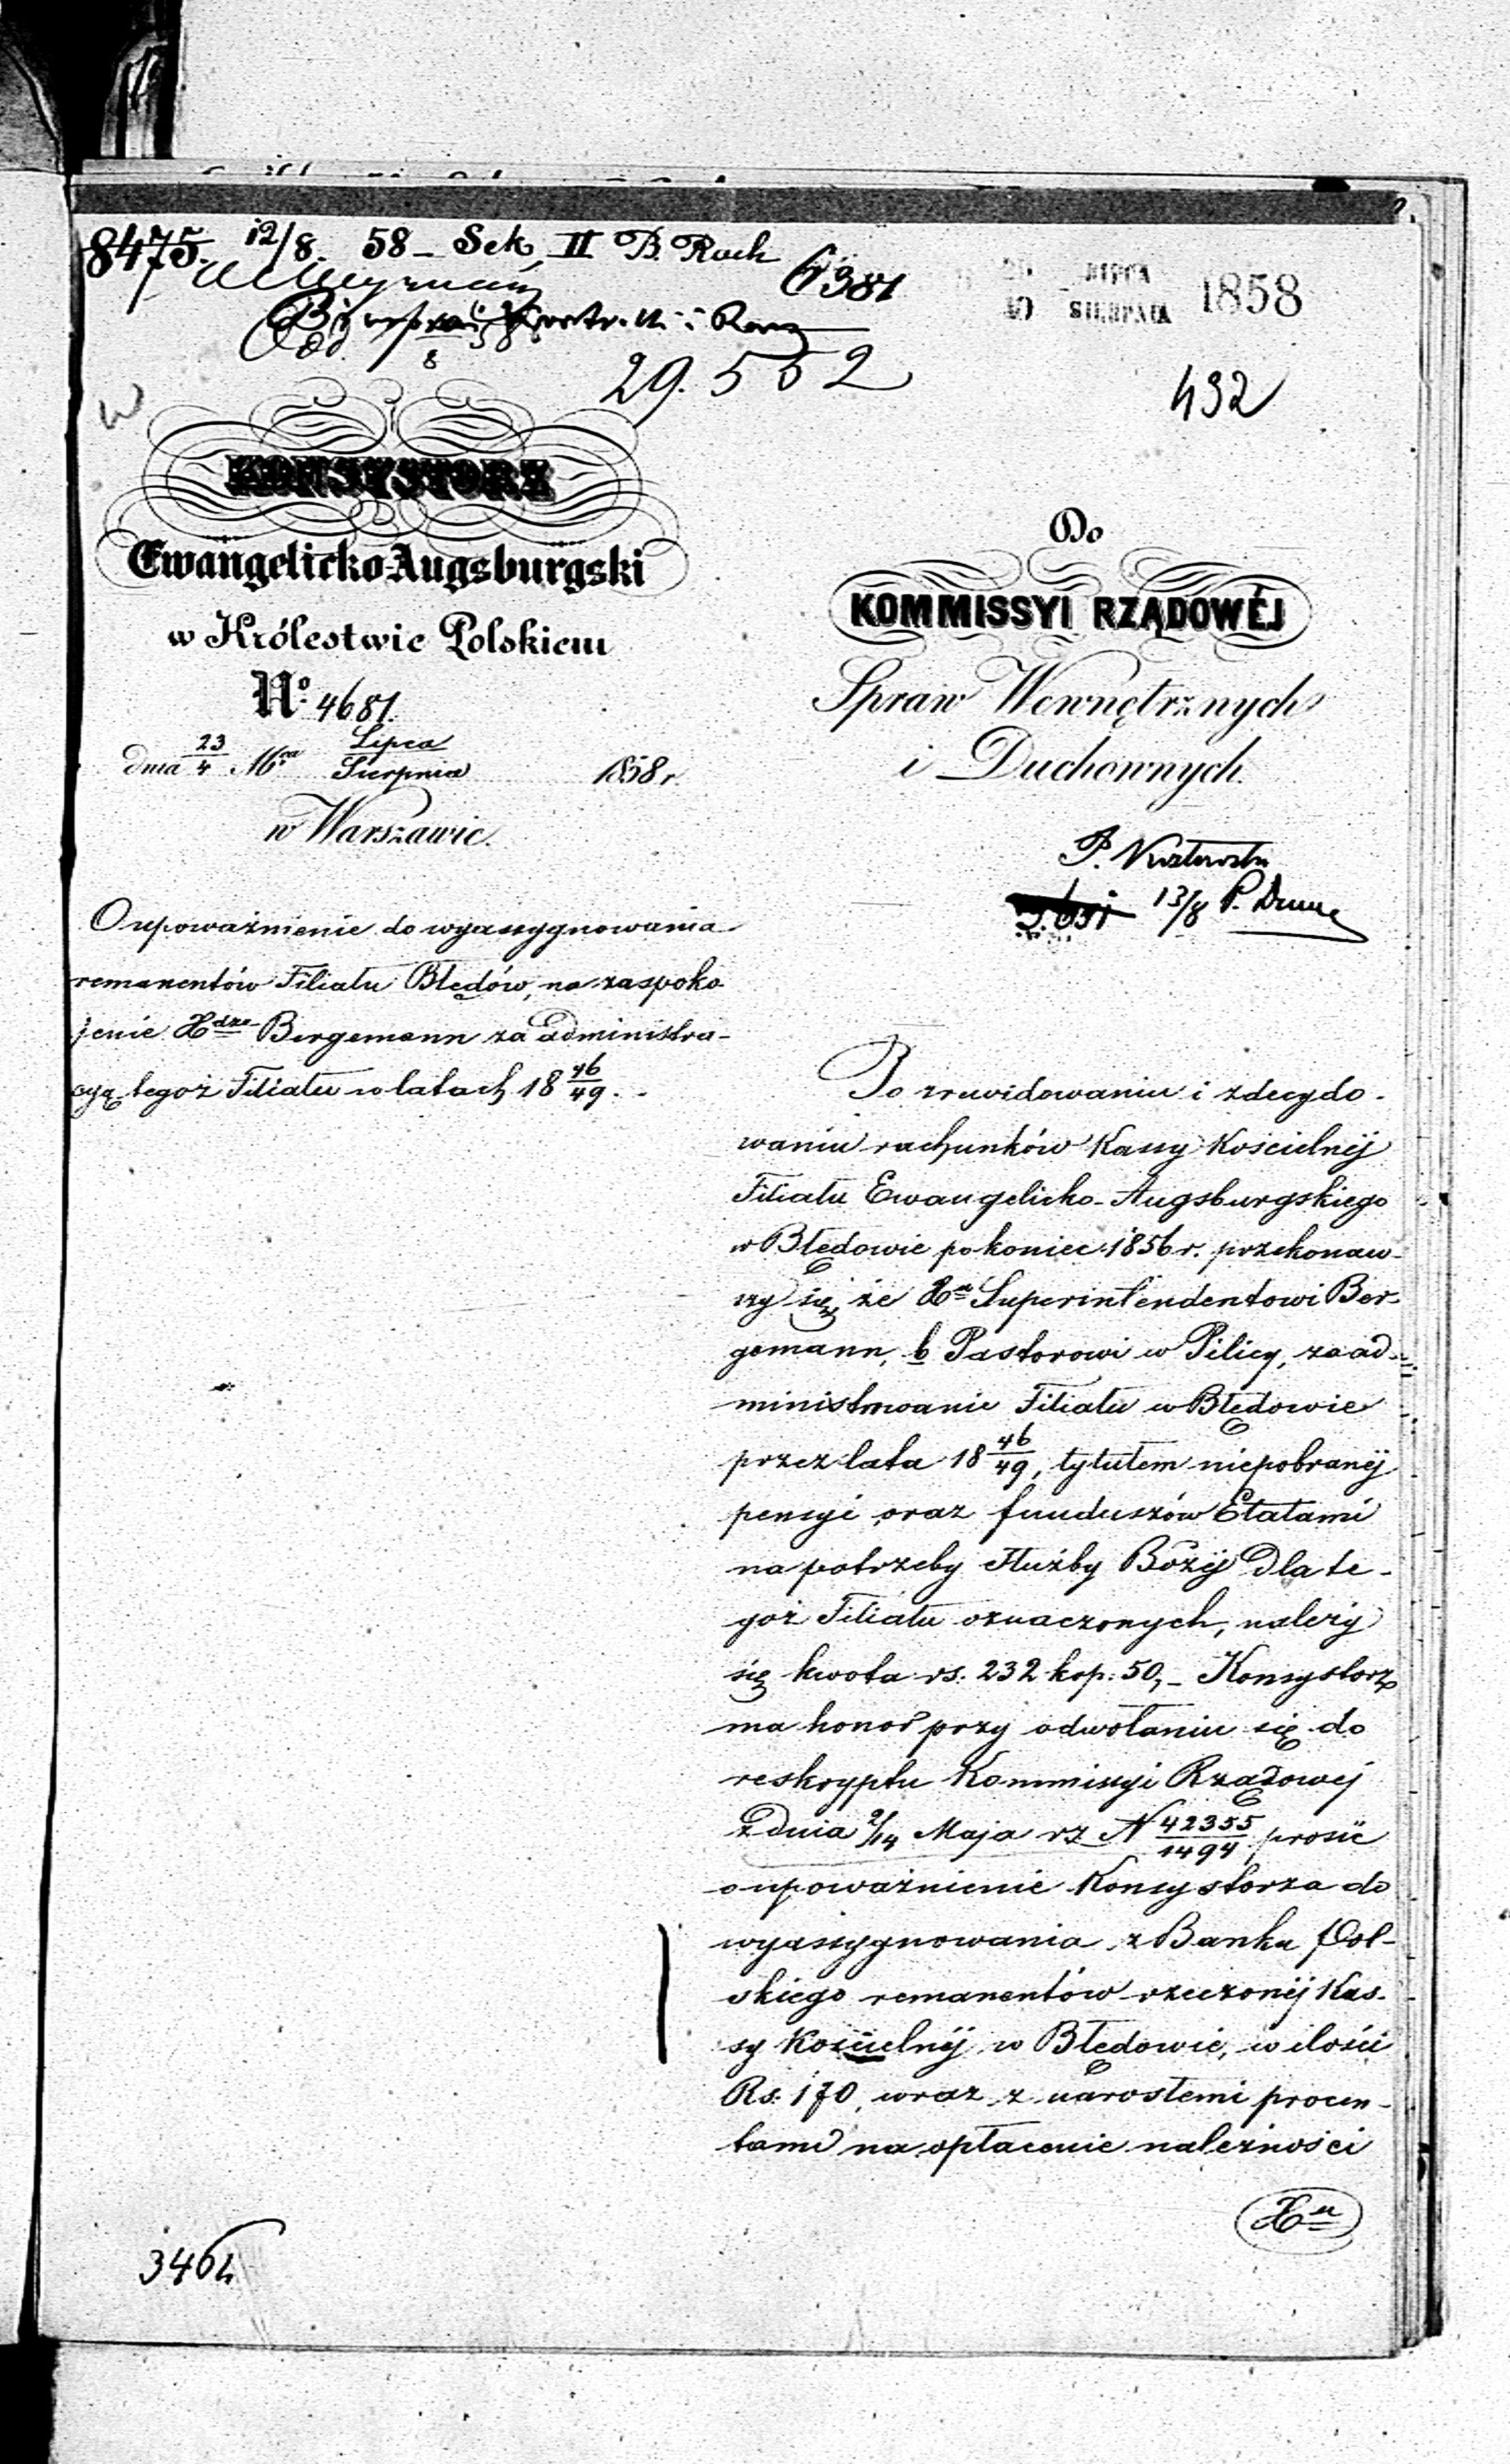 8475. 12/8. 58 - Sek. II B. Rach
6381
LIPCA
SIERPNIA 1858
29.562
432
KONSYSTORZ
Ewangelicko-Augsburgski
w Królestwie Polskiem
No. 4681.
dnia 23/4 Mca Lipca/Sierpnia 1858 r.
w Warszawie.
O upoważnienie do wyassygnowania
remanentów Filiału Błędów, na zaspoko
jenie Xdza Bergemann za administra-
cyą tegoż Filiału w latach 18 46/49.
Do
KOMMISSYI RZĄDOWÉJ
Spraw Wewnętrznych
i Duchownych.
13/8 P.
Po zrewidowaniu i zdecydo-
waniu rachunków Kassy Kościelnéj
Filiału Ewangelicko-Augsburgskiego
w Błędowie po koniec 1856 r. przekonaw-
szy się, że Xu Superintendentowi Ber-
gemann, b Pastorowi w Pilicy, za ad-
ministrowanie Filiału w Błędowie
przez lata 18 46/49, tytułem niepobranéj
pensyi oraz funduszów Etatami
na potrzeby służby Bożéj dla te-
goż Filiału oznaczonych, należy
się kwota rs. 232 kop. 50, - Konsystorz
ma honor przy odwołaniu się do
reskryptu Kommissyi Rządowéj
z dnia 2/14 Maja rz N 42355/1494 prosić
o upoważnienie Konsystorza do
wyassygnowania z Banku Pol-
skiego remanentów rzeczonéj Kas-
sy Kościelnéj w Błędowie, w ilości
Rs. 170, wraz z narosłemi procen-
tami na opłacenie należności
Xu
3464